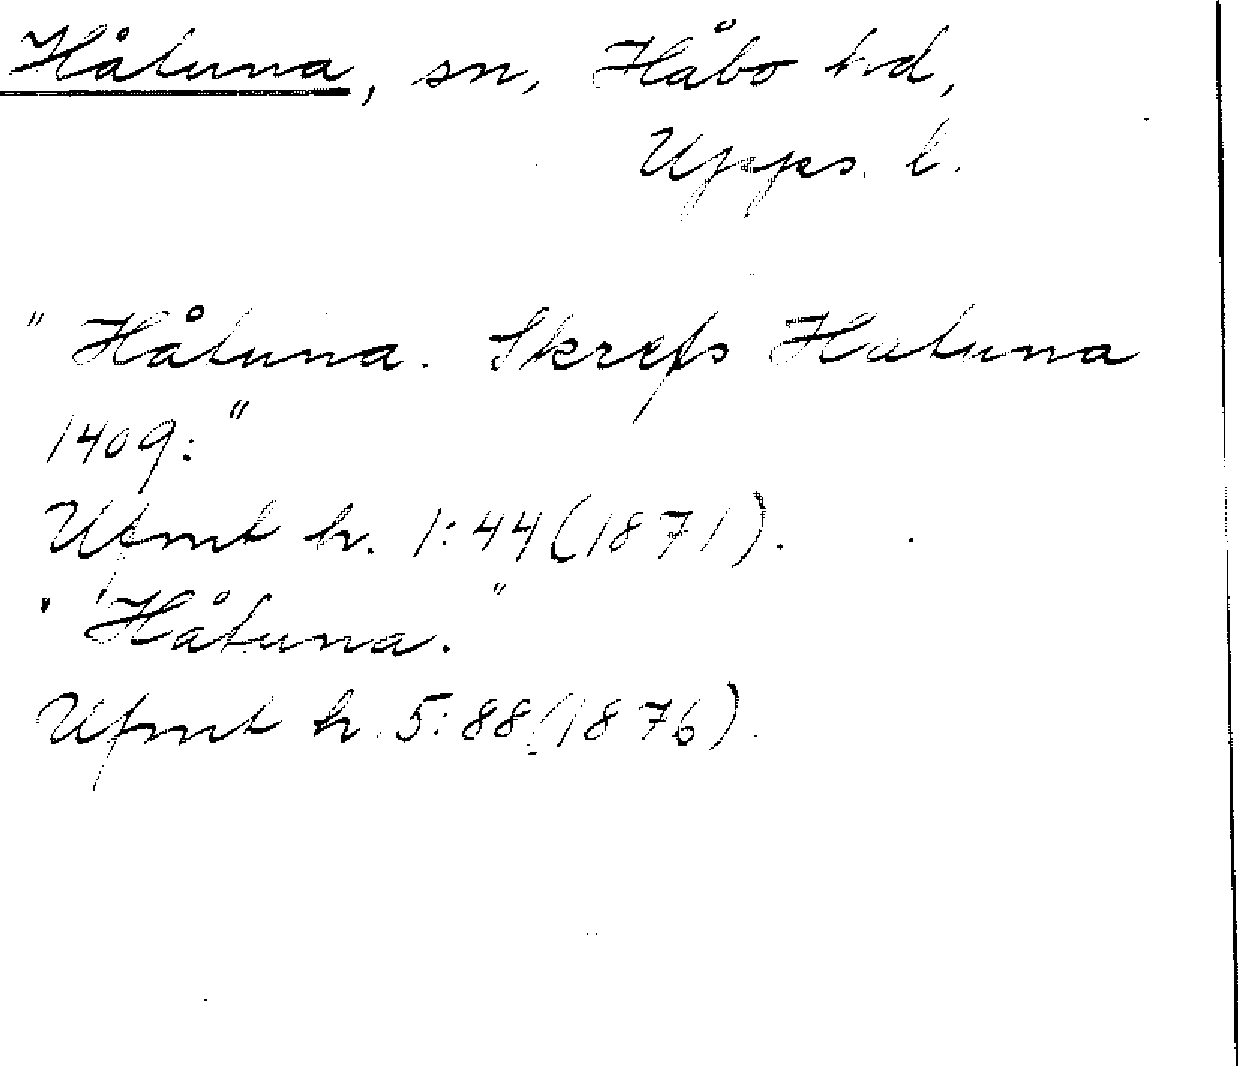 Håtuna, sn, Håbo hd,
Upps. l.
"Håtuna. Skrefs Hatuna
1409:"
Ufmt h. 1:44(1871).
"Håtuna."
Ufmt h. 5:88(1876).